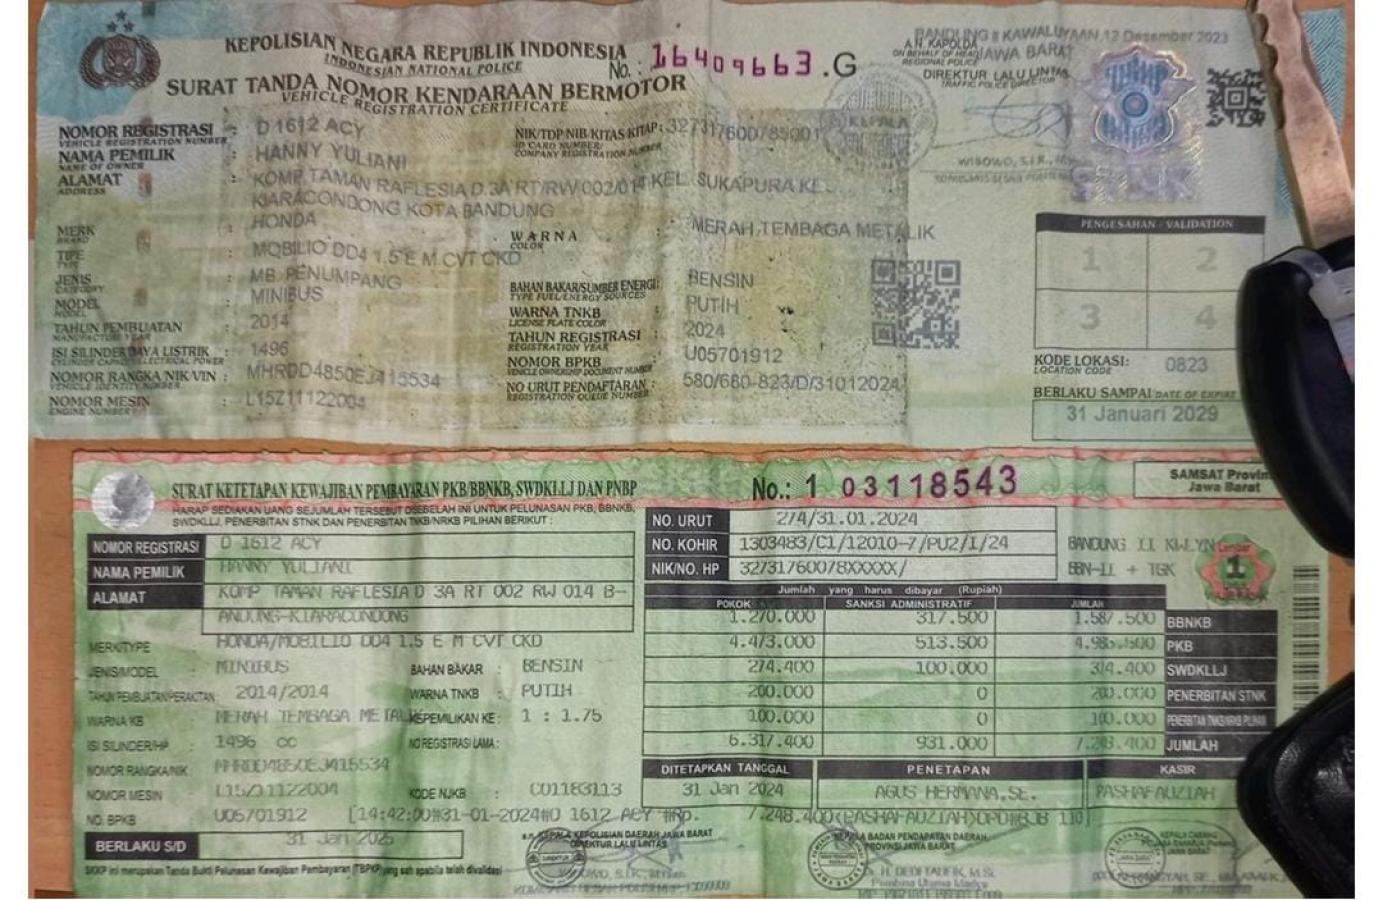 KEPOLISIAN NEGARA REPUBLIK INDONESIA
INDONESIAN NATIONAL POLICE
SURAT TANDA NOMOR KENDARAAN BERMOTOR
VEHICLE REGISTRATION CERTIFICATE
No.: 16409663.G
BANDUNG II KAWALUYAAN, 12 Desember 2023
A.N. KAPOLDA JAWA BARAT
ON BEHALF OF HEAD
REGIONAL POLICE
DIREKTUR LALU LINTAS
TRAFFIC POLICE DIRECTOR
KEPALA
WIBOWO, S.I.K.,
STNK
NOMOR REGISTRASI : D 1612 ACY
VEHICLE REGISTRATION NUMBER
NIK/TDP/NIB/KITAS/KITAP : 3273176007850001
ID CARD NUMBER/
COMPANY REGISTRATION NUMBER
NAMA PEMILIK : HANNY YULIANI
NAME OF OWNER
ALAMAT : KOMP TAMAN RAFLESIA D 3A RT/RW 002/014 KEL. SUKAPURA KEC.
ADDRESS
KIARACONDONG KOTA BANDUNG
MERK : HONDA
BRAND
WARNA : MERAH TEMBAGA METALIK
COLOR
TIPE : MOBILIO DD4 1.5 E M CVT CKD
TYPE
JENIS : MB. PENUMPANG
CATEGORY
BAHAN BAKAR/SUMBER ENERGI : BENSIN
TYPE FUEL/ENERGY SOURCES
MODEL : MINIBUS
MODEL
WARNA TNKB : PUTIH
LICENSE PLATE COLOR
TAHUN PEMBUATAN : 2014
MANUFACTURE YEAR
TAHUN REGISTRASI : 2024
REGISTRATION YEAR
ISI SILINDER/DAYA LISTRIK : 1496
CYLINDER CAPACITY/ELECTRICAL POWER
NOMOR BPKB : U05701912
VEHICLE OWNERSHIP DOCUMENT NUMBER
NOMOR RANGKA/NIK/VIN : MHRDD4850EJ415534
VEHICLE IDENTITY NUMBER
NO URUT PENDAFTARAN : 580/680-823/D/31012024
REGISTRATION QUEUE NUMBER
NOMOR MESIN : L15Z11122004
ENGINE NUMBER
PENGESAHAN - VALIDATION
1 2
3 4
KODE LOKASI : 0823
LOCATION CODE
BERLAKU SAMPAI DATE OF EXPIRE
31 Januari 2029
SURAT KETETAPAN KEWAJIBAN PEMBAYARAN PKB/BBNKB, SWDKLLJ DAN PNBP
No.: 1 03118543
SAMSAT Provin
Jawa Barat
HARAP SEDIAKAN UANG SEJUMLAH TERSEBUT DISEBELAH INI UNTUK PELUNASAN PKB, BBNKB,
SWDKLLJ, PENERBITAN STNK DAN PENERBITAN TNKB/NRKB PILIHAN BERIKUT :
NO. URUT 274/31.01.2024
NO. KOHIR 1303483/C1/12010-7/PU2/I/24
NIK/NO. HP 32731760078XXXXX/
BANDUNG II KWLYN
BBN-II + TGK
Lembar
1
NOMOR REGISTRASI D 1612 ACY
NAMA PEMILIK HANNY YULIANI
ALAMAT KOMP TAMAN RAFLESIA D 3A RT 002 RW 014 B-
ANDUNG-KIARACONDONG
MERK/TYPE HONDA/MOBILIO DD4 1.5 E M CVT CKD
JENIS/MODEL : MINIBUS
BAHAN BAKAR : BENSIN
TAHUN PEMBUATAN/PERAKITAN : 2014/2014
WARNA TNKB : PUTIH
WARNA KB : MERAH TEMBAGA METAL
KEPEMILIKAN KE : 1 : 1.75
ISI SILINDER/HP : 1496 CC
NO REGISTRASI LAMA :
NOMOR RANGKA/NIK : MHRDD4850EJ415534
NOMOR MESIN : L15Z11122004
KODE NJKB : C01183113
NO. BPKB : U05701912
Jumlah yang harus dibayar (Rupiah)
POKOK SANKSI ADMINISTRATIF JUMLAH
1.270.000 317.500 1.587.500 BBNKB
4.473.000 513.500 4.986.500 PKB
274.400 100.000 374.400 SWDKLLJ
200.000 0 200.000 PENERBITAN STNK
100.000 0 100.000 PENERBITAN TNKB/NRKB PILIHAN
6.317.400 931.000 7.248.400 JUMLAH
DITETAPKAN TANGGAL PENETAPAN KASIR
31 Jan 2024 AGUS HERMANA,SE. PASHAFAUZIAH
[14:42:00#31-01-2024#D 1612 ACY #Rp. 7.248.400(PASHAFAUZIAH)DPD#BJB 110]
BERLAKU S/D 31 Jan 2025
SKKP ini merupakan Tanda Bukti Pelunasan Kewajiban Pembayaran (TBPKP) yang sah apabila telah divalidasi
a.n. KEPALA KEPOLISIAN DAERAH JAWA BARAT
DIREKTUR LALU LINTAS
KEPALA BADAN PENDAPATAN DAERAH
PROVINSI JAWA BARAT
H. DEDI TAUFIK, M.Si.
Pembina Utama Madya
KEPALA CABANG